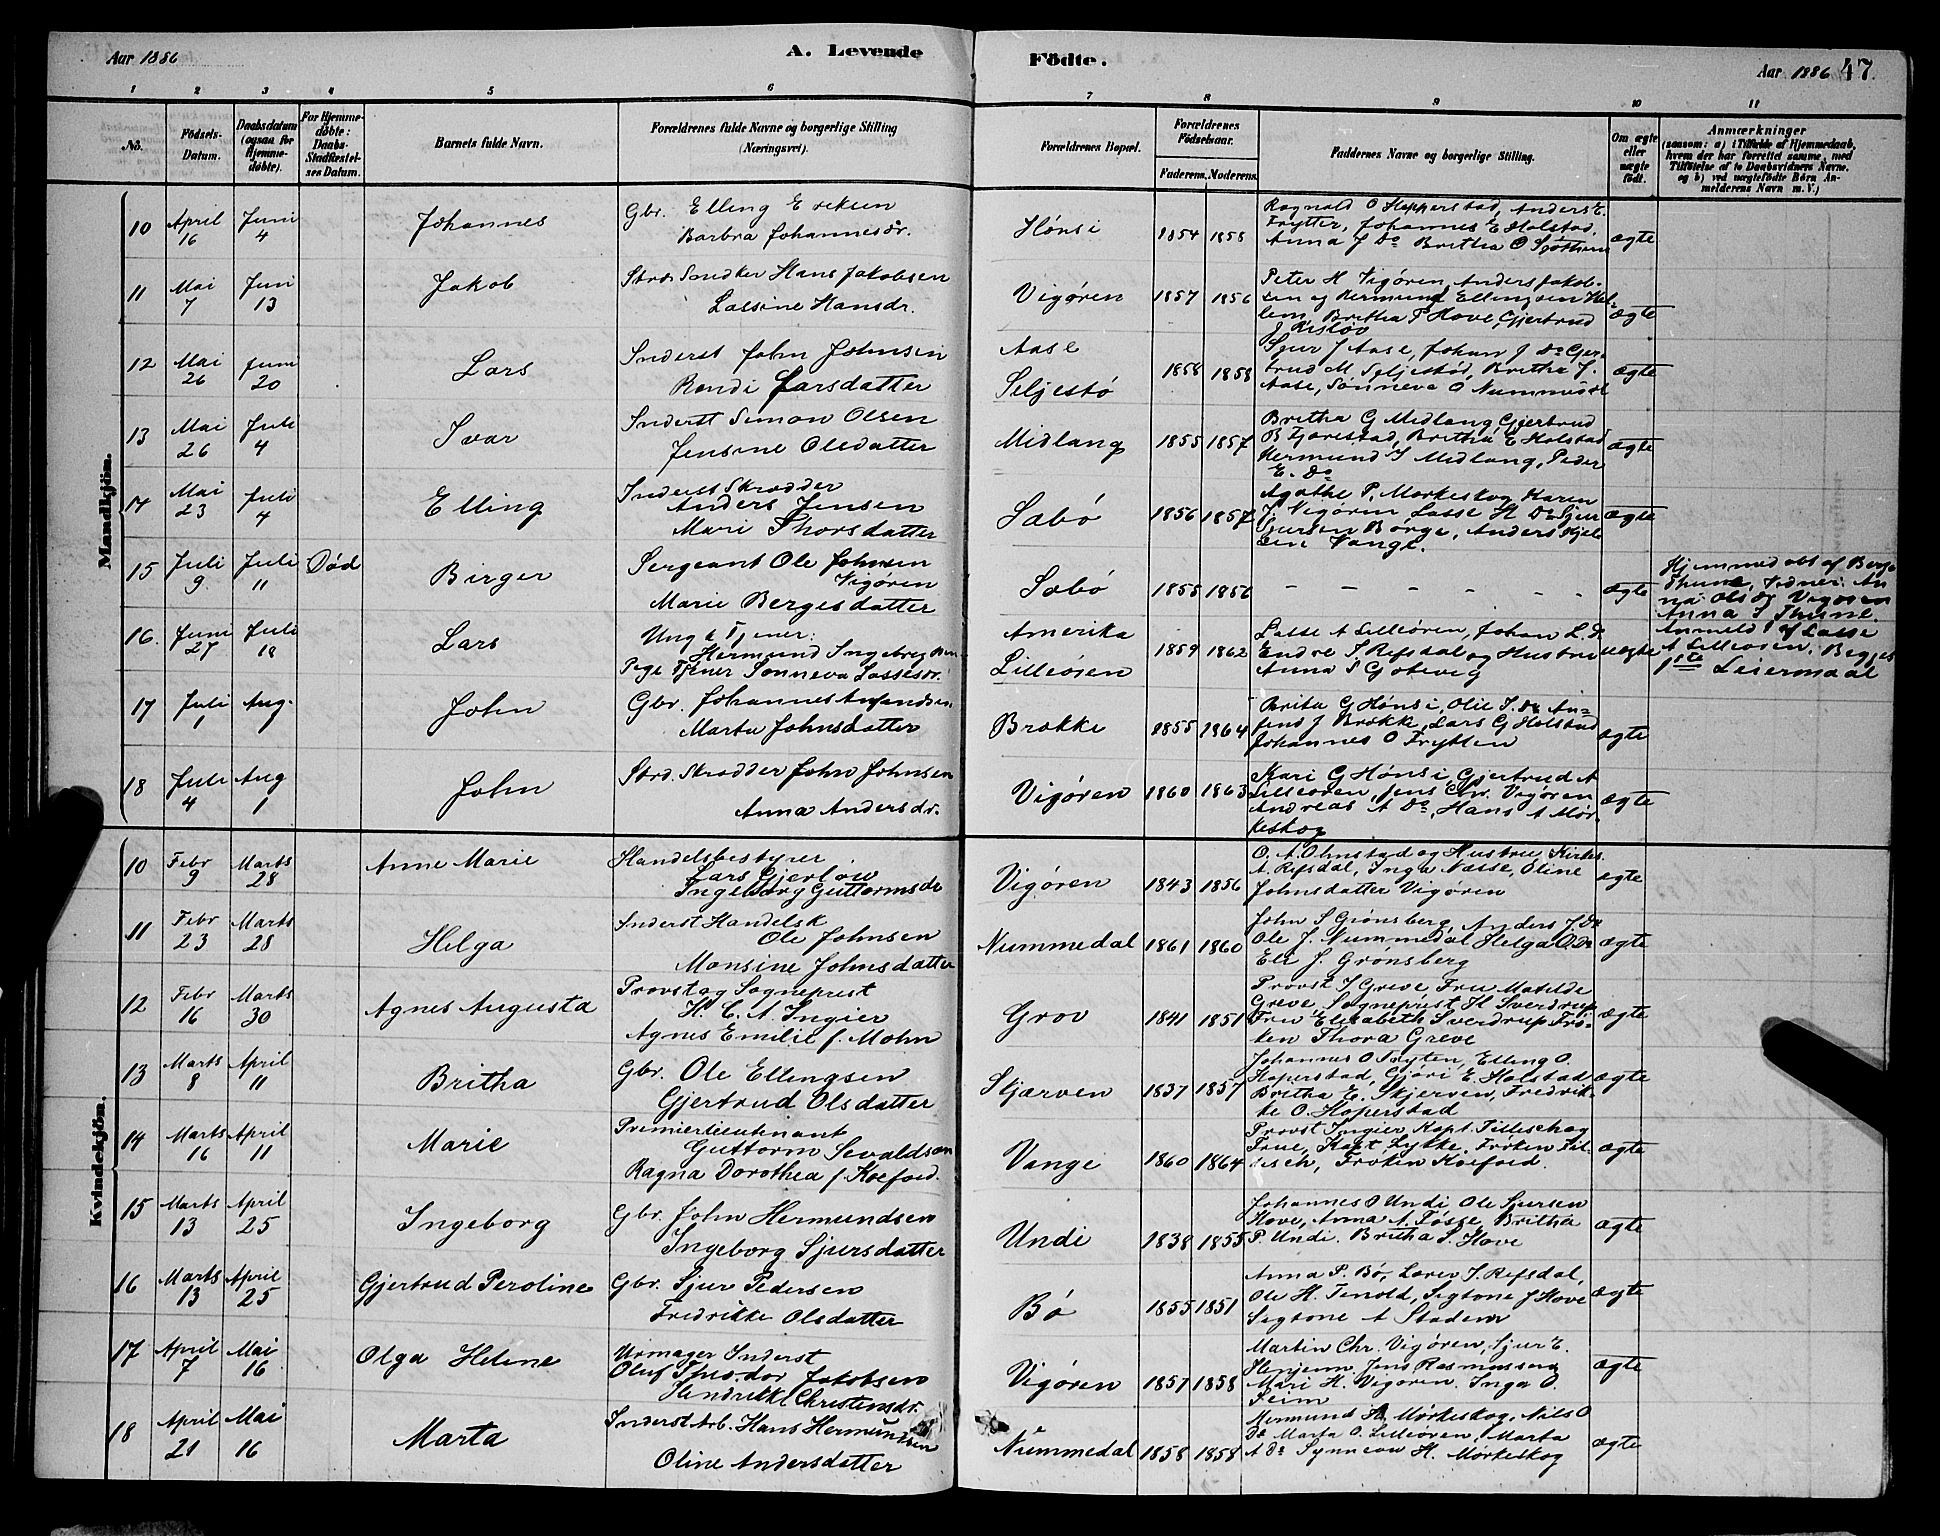 Aar 1886
A. Levende
Födte.
Aar 1886 47.
1 2 3 4 5 6 7 8 9 10 11
No.
Födsels-
Datum.
Daabsdatum
(ogsaa for
Hjemme-
døbte).
For Hjemme-
døbte:
Daabs-
Stadfæstel-
ses Datum.
Barnets fulde Navn.
Forældrenes fulde Navne og borgerlige Stilling
(Næringsvei).
Forældrenes Bopæl.
Forældrenes
Födselsaar.
Faderens. Moderens.
Faddernes Navne og borgerlige Stilling.
Om ægte
eller
uægte
født.
Anmærkninger
(saasom: a) i Tilfælde af Hjemmedaab,
hvem der har forrettet samme, med
Tilføielse af to Daabsvidners Navne.
og b) ved uægtefødte Børn An-
melderens Navn m. V.)
Mandkjön.
10 April 16 Juni 4 Johannes
Gbr. Elling Eriksen
Barbra Johannesdr.
Hønsi 1854 1858
Ragnald O Hopperstad, Anders E.
Frytter, Johannes E Holstad,
Anna J Do Britha O
ægte
11 Mai 7 Juni 13 Jakob
Snedker Hans Jakobsen
Lassine Hansdr.
Vigøren 1857 1856
Peter H Vigøren, Anders Jakob-
sen og Hermund Ellingsen
Britha P Hove, Gjertrud
J
ægte
12 Mai 26 Juni 20 Lars
Inderst John Johnsen
Randi Larsdatter
Aase
Seljestø
1858 1858
Sjur J Aase, Johan J Do Gjer-
trud M Seljestød, Britha J.
Aase, Sønneva O Nummedal
ægte
13 Mai 26 Juli 4 Ivar
Inderst Simon Olsen
Jensine Olsdatter
Midlang 1855 1857
Britha G Midlang, Gjertrud
B Fjørestad, Britha E Holstad
Hermund J Midlang, Peder
E. Do
ægte
14 Mai 23 Juli 4 Elling
Inderst Skrædder
Anders Jensen
Mari Thorsdatter
Sæbø 1856 1857
Agathe P. Mørkeskog, Karen
J Vigøren Lasse H Do Sjur
Sjursen Børge, Anders
Vange.
ægte
15 Juli 9 Juli 11 Død Birger
Sergeant Ole Johnsen
Vigøren
Marie Bergesdatter
Sæbø 1855 1856
– – – – – –
ægte
Hjemmedøbt af Berge
Thune, Vidner: An
na Olsdr Vigøren
Anna J Thune.
16. Juni 27 Juli 18 Lars
Ungk Tjener:
Hermund Ingebregtsen
Pige Tjener Sønneva Lassesdr.
Amerika
Lilleøren
1859 1862
Lasse A Lilleøren, Johan L. Do
Endre S Refsdal og Hustru
Anna S Gjøtevig
uægte
Anmeld af Lasse
A Lilleøren. Begges
1ste Leiermaal
17 Juli 1 Aug. John
Gbr. Johannes
Marta Johnsdatter
Brække 1855 1864
Brita G Hønsi, Olie J. Do An-
Jens J Brække, Lars G Holstad
Johannes O Frytten
ægte
18 Juli 4 Aug 1 John
Skrædder John Johnsen
Anna Andersdr.
Vigøren 1860 1863
Kari G Hønsi, Gjertrud A
Lilleøren, Jens Chr. Vigøren
Andreas A Do, Hans A Mør-
keskog
ægte
Kvindekjön.
10 Febr 9 Marts 28 Anne Marie
Handelsbestyrer
Lars Gjerløw
Ingeborg Guttormsdr
Vigøren 1843 1856
O. A. Ohnstad og Hustru, Kirkes.
A. Refsdal, Inga Næsse, Oline
Johnsdatter Vigøren
ægte
11 Febr 23 Marts 28 Helga
Inderst Handelsk
Ole Johnsen
Monsine Johnsdatter
Nummedal 1861 1860
John S Grønsberg, Anders J. Do
Ole J. Nummedal Helga O Do
Eli J. Grønsberg
ægte
12 Febr 16 Marts 30 Agnes Augusta
Provst og Sogneprest
H. C. A. Ingier
Agnes Emilie f. Mohn
Grov 1841 1851
Provst J Greve Fru Matilde
Greve, Sogneprest H Sverdrup
Fru Elisabeth Sverdrup Frø-
ken Thora Greve
ægte
13 Marts 8 April 11 Britha
Gbr. Ole Ellingsen
Gjertrud Olsdatter
Skjærven 1837 1857
Johannes O Fryten, Elling O
Hoperstad, Gjøri E. Holstad
Britha E. Skjerven, Fredrik-
ke O. Hoperstad
ægte
14 Marts 16 April 11 Marie
Premierlieutenant
Guttorm Sevaldsen
Ragna Dorothea f. Koefoed.
Vange 1860 1864
Provst Ingier, Kapt. Tillisch og
Frue, Kapt. Lykke, Frøken Til-
lisch, Frøken Koefoed.
ægte
15 Marts 13 April 25 Ingeborg
Gbr. John Hermundsen
Ingeborg Sjursdatter
Undi 1838 1855
Johannes O Undi, Ole Sjursen
Hove, Anna A. Føsse, Britha
P. Undi. Britha S. Hove
ægte
16 Marts 13 April 25 Gjertrud Peroline
Gbr. Sjur Pedersen
Fredrikke Olsdatter
Bø 1855 1851
Anna P. Bø, Lover J. Refsdal,
Ole H. Tenold, Sigtone J Hove
Sigtone A Stadem
ægte
17 April 7 Mai 16 Olga Heline
Urmager Inderst
Oluf Theodor Jakobsen
Hendrikke Christensdr.
Vigøren 1857 1858
Martin Chr. Vigøren, Sjur E.
Henjem, Jens Rasmussen
Mari H. Vigøren. Inga O.
Feim
ægte
18 April 21 Mai 16 Marta
Inderst Arb. Hans Hermundsen
Oline Andersdatter
Nummedal 1858 1858
Hermund H. Mørkeskog, Nils O
Do Marta O. Lilleøren, Marta
A Do Synneva H. Mørkeskog
ægte